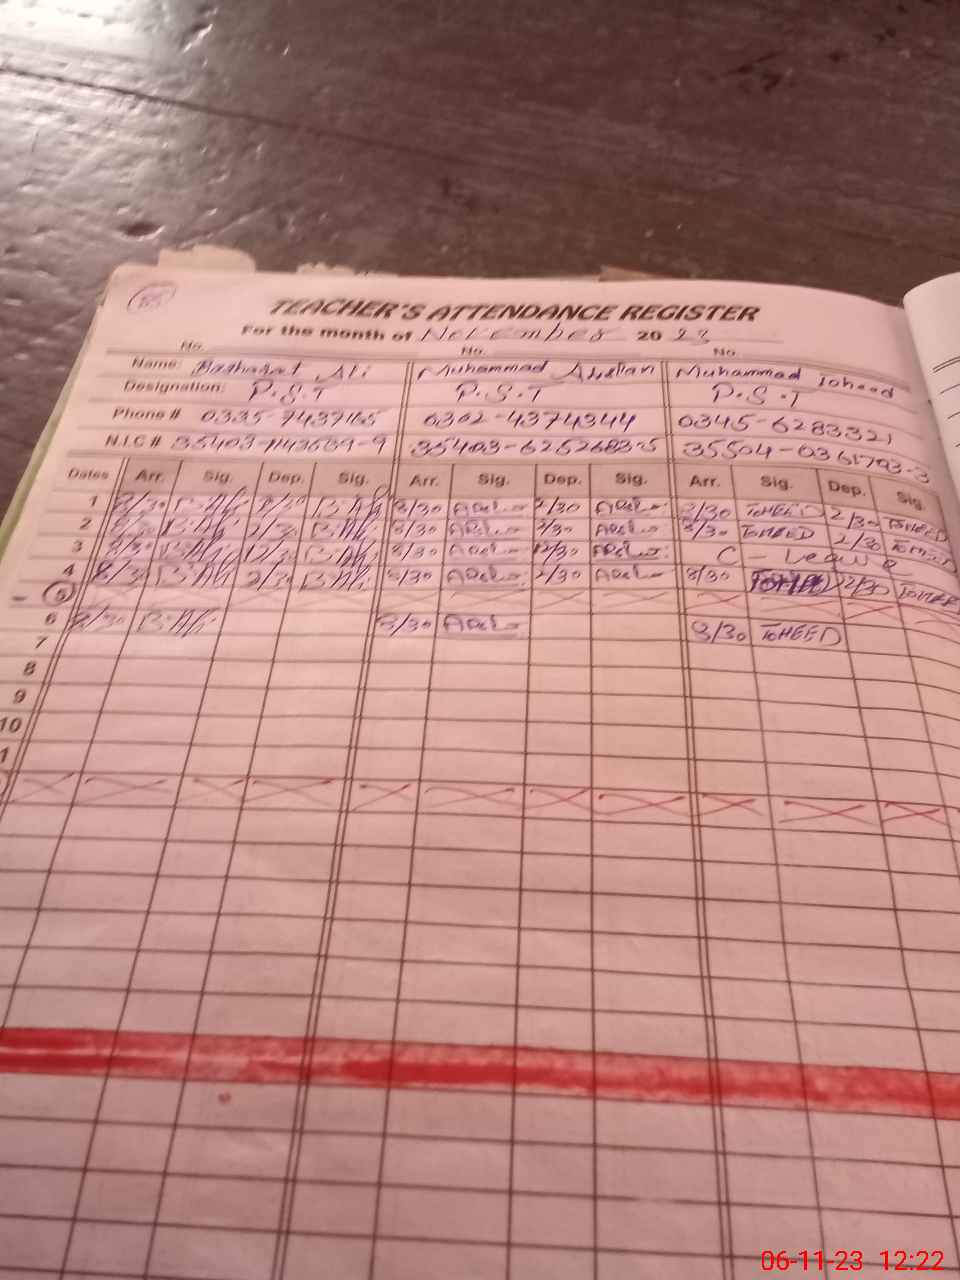 TEACHER'S ATTENDANCE REGISTER
For the month of November 20 23
No. No. No.
Name: Basharat Ali Muhammad Muhammad Toheed
Designation: P.S.T P.S.T P.S.T
Phone # 0335-7437165 0302-4374344 0345-6283321
N.I.C # 35504-0361793-3
Dates Arr. Sig. Dep. Sig. Arr. Sig. Dep. Sig. Arr. Sig. Dep. Sig
1 8/30 B.Ali 2/30 B.Ali 8/30 2/30 8/30 TOHEED 2/30 TOHEED
2 8/30 B.Ali 2/30 B.Ali 8/30 2/30 8/30 TOHEED 2/30 TOHEED
3 8/30 B.Ali 12/30 B.Ali 8/30 12/30 C - Leave
4 8/30 B.Ali 2/30 B.Ali 8/30 2/30 8/30 TOHEED 2/30 TOHEED
5
6 8/30 B.Ali 8/30 8/30 TOHEED
7
8
9
10
1
06-11-23 12:22